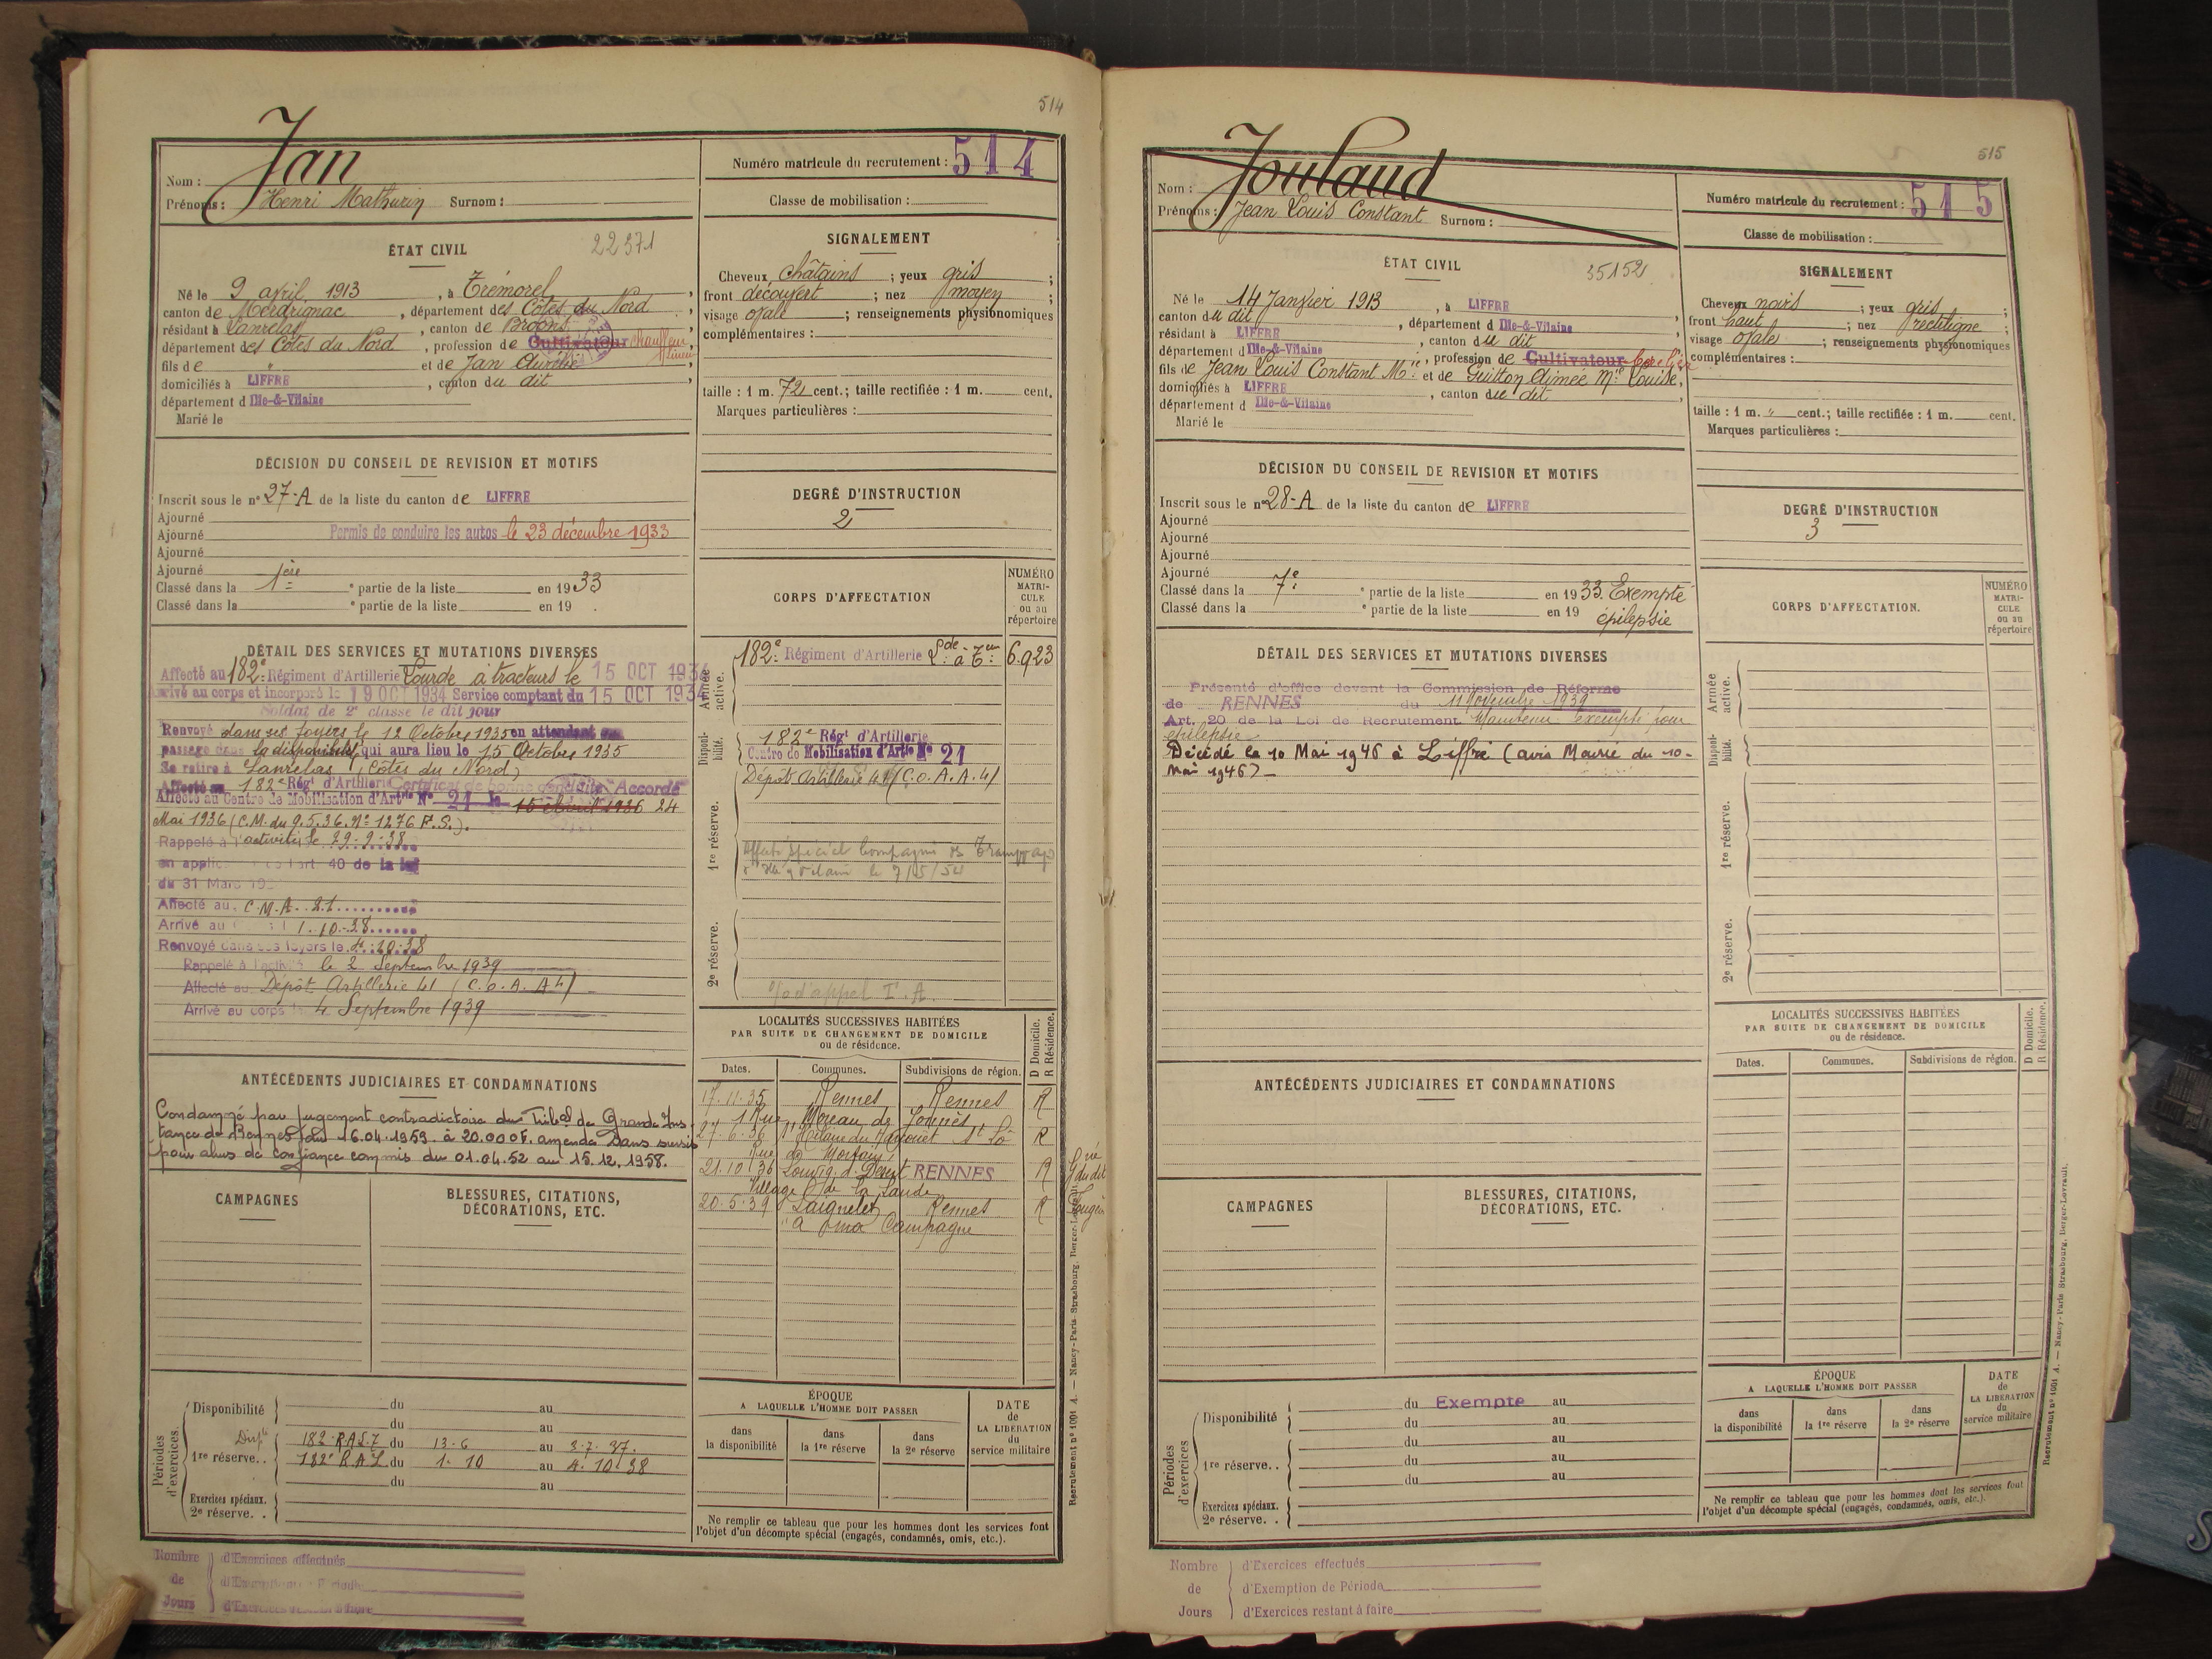 514
Jan
Nom :
Prénoms : Henri Mathurin Surnom :
Numéro matricule du recrutement : 514
Classe de mobilisation :
ÉTAT CIVIL
22371
Né le 9 avril 1913, à Trémorel,
canton de Merdrignac, département des Côtes du Nord,
résidant à Lanrelas, canton de Broons,
département des Côtes du Nord, profession de Cultivateur chauffeur
fils de " et de Jan Aurélie
domiciliés à LIFFRE, canton du dit,
département d Ille-&-Vilaine
Marié le
SIGNALEMENT
Cheveux châtains ; yeux gris ;
front découvert ; nez moyen ;
visage ovale ; renseignements physionomiques
complémentaires :
taille : 1 m. 72 cent.; taille rectifiée : 1 m. cent.
Marques particulières :
DÉCISION DU CONSEIL DE REVISION ET MOTIFS
Inscrit sous le n° 27-A de la liste du canton de LIFFRE
Ajourné
Ajourné Permis de conduire les autos le 23 décembre 1933
Ajourné
Ajourné
Classé dans la 1ère e partie de la liste en 1933
Classé dans la e partie de la liste en 19 .
DEGRÉ D'INSTRUCTION
2
CORPS D'AFFECTATION
NUMÉRO MATRI-CULE ou au répertoire
DÉTAIL DES SERVICES ET MUTATIONS DIVERSES
Affecté au 182e Régiment d'Artillerie Lourde à tracteurs le 15 OCT 1934
Arrivé au corps et incorporé le 19 OCT 1934 Service comptant du 15 OCT 1934
Soldat de 2e classe le dit jour
Renvoyé dans ses foyers le 12 Octobre 1935 en attendant son
passage dans la disponibilité qui aura lieu le 15 Octobre 1935
Se retire à Lanrelas (Côtes du Nord)
Affecté au 182e Rég' d'Artillerie Certificat de bonne conduite "Accordé"
Affecté au Centre de Mobilisation d'Artie N° 21 le 15 Avril 1936 24
Mai 1936 (C.M. du 9.5.36. N° 1276 P.S.).
Rappelé à l'activité le 29-9-38
en applic de l'art. 40 de la loi
du 31 Mars 19
Affecté au C.M.A. 21
Arrivé au 1-10-38
Renvoyé dans ses foyers le 4-10-38
Rappelé à l'activité le 2 Septembre 1939
Affecté au Dépôt Artillerie 41 (C.O.A. A4)
Arrivé au corps le 4 Septembre 1939
Armée active.
182e Régiment d'Artillerie Lde à Teur 6.923
Disponi-bilité.
182e Rég' d'Artillerie
Centre de Mobilisation d'Artie N° 21
Dépôt Artillerie 41 (C.O.A.A.4)
1re réserve.
Affecté Spécial Compagnie
le 7/5/54
2e réserve.
d'appel T.A.
LOCALITÉS SUCCESSIVES HABITÉES
PAR SUITE DE CHANGEMENT DE DOMICILE
ou de résidence.
D Domicile.
R Résidence.
Dates. Communes. Subdivisions de région.
17.11.35 Rennes Rennes R
1 Rue Moreau de Jonnès
27-6-36 St Hilaire du Harcouët St Lô R
Rue de Mortain
21.10 36 Louvig. d. Désert RENNES R
Village de la Lande
20-5-39 Laignelet Rennes R
"à ma Campagne
ANTÉCÉDENTS JUDICIAIRES ET CONDAMNATIONS
Condamné par jugement contradictoire du Tribal de Grande Ins-
tance de Rennes du 16.04.1959 à 20.000F. amende sans sursis
pour abus de confiance commis du 01.04.52 au 15.12.1958.
CAMPAGNES
BLESSURES, CITATIONS,
DÉCORATIONS, ETC.
Périodes d'exercices.
Disponibilité du au
du au
Dispté 182 R.A.L.T du 13-6 au 3.7.37.
1re réserve. . 182e R.A.L du 1. 10 au 4.10.38
du au
Exercices spéciaux.
2e réserve. .
ÉPOQUE
A LAQUELLE L'HOMME DOIT PASSER
dans la disponibilité dans la 1re réserve dans la 2e réserve
DATE de LA LIBÉRATION du service militaire
Ne remplir ce tableau que pour les hommes dont les services font
l'objet d'un décompte spécial (engagés, condamnés, omis, etc.).
Recrutement n° 1001 A. — Nancy-Paris-Strasbourg, Berger-Levrault.
Nombre de Jours
d'Exercices effectués
d'Exemption de Période
d'Exercices restant à faire
515
Joulaud
Nom :
Prénoms : Jean Louis Constant Surnom :
Numéro matricule du recrutement : 515
Classe de mobilisation :
ÉTAT CIVIL
35152
Né le 14 Janvier 1913, à LIFFRE
canton du dit, département d Ille-&-Vilaine,
résidant à LIFFRE, canton du dit
département d Ille-&-Vilaine, profession de Cultivateur
fils de Jean Louis Constant Mie et de Guitton Aimée Mie Louise,
domiciliés à LIFFRE, canton du dit,
département d Ille-&-Vilaine
Marié le
SIGNALEMENT
Cheveux noirs ; yeux gris ;
front haut ; nez rectiligne ;
visage ovale ; renseignements physionomiques
complémentaires :
taille : 1 m. " cent.; taille rectifiée : 1 m. cent.
Marques particulières :
DÉCISION DU CONSEIL DE REVISION ET MOTIFS
Inscrit sous le n° 28-A de la liste du canton de LIFFRE
Ajourné
Ajourné
Ajourné
Ajourné
Classé dans la 7e e partie de la liste en 1933 Exempté
Classé dans la e partie de la liste en 19 épilepsie
DEGRÉ D'INSTRUCTION
3
CORPS D'AFFECTATION.
NUMÉRO MATRI-CULE ou au répertoire
DÉTAIL DES SERVICES ET MUTATIONS DIVERSES
Présenté d'office devant la Commission de Réforme
de RENNES du 11 Novembre 1939
Art. 20 de la Loi de Recrutement. Maintenu exempté pour
épilepsie
Décédé le 10 Mai 1946 à Liffré (avis Mairie du 10-
Mai 1946)_
Armée active.
Disponi-bilité.
1re réserve.
2e réserve.
LOCALITÉS SUCCESSIVES HABITÉES
PAR SUITE DE CHANGEMENT DE DOMICILE
ou de résidence.
D Domicile.
R Résidence.
Dates. Communes. Subdivisions de région.
ANTÉCÉDENTS JUDICIAIRES ET CONDAMNATIONS
CAMPAGNES
BLESSURES, CITATIONS,
DÉCORATIONS, ETC.
Périodes d'exercices
Disponibilité du Exempte au
du au
du au
1re réserve. . du au
du au
Exercices spéciaux.
2e réserve. .
ÉPOQUE
A LAQUELLE L'HOMME DOIT PASSER
dans la disponibilité dans la 1re réserve dans la 2e réserve
DATE de LA LIBÉRATION du service militaire
Ne remplir ce tableau que pour les hommes dont les services font
l'objet d'un décompte spécial (engagés, condamnés, omis, etc.).
Recrutement n° 1001 A. — Nancy-Paris-Strasbourg, Berger-Levrault.
Nombre de Jours
d'Exercices effectués
d'Exemption de Période
d'Exercices restant à faire